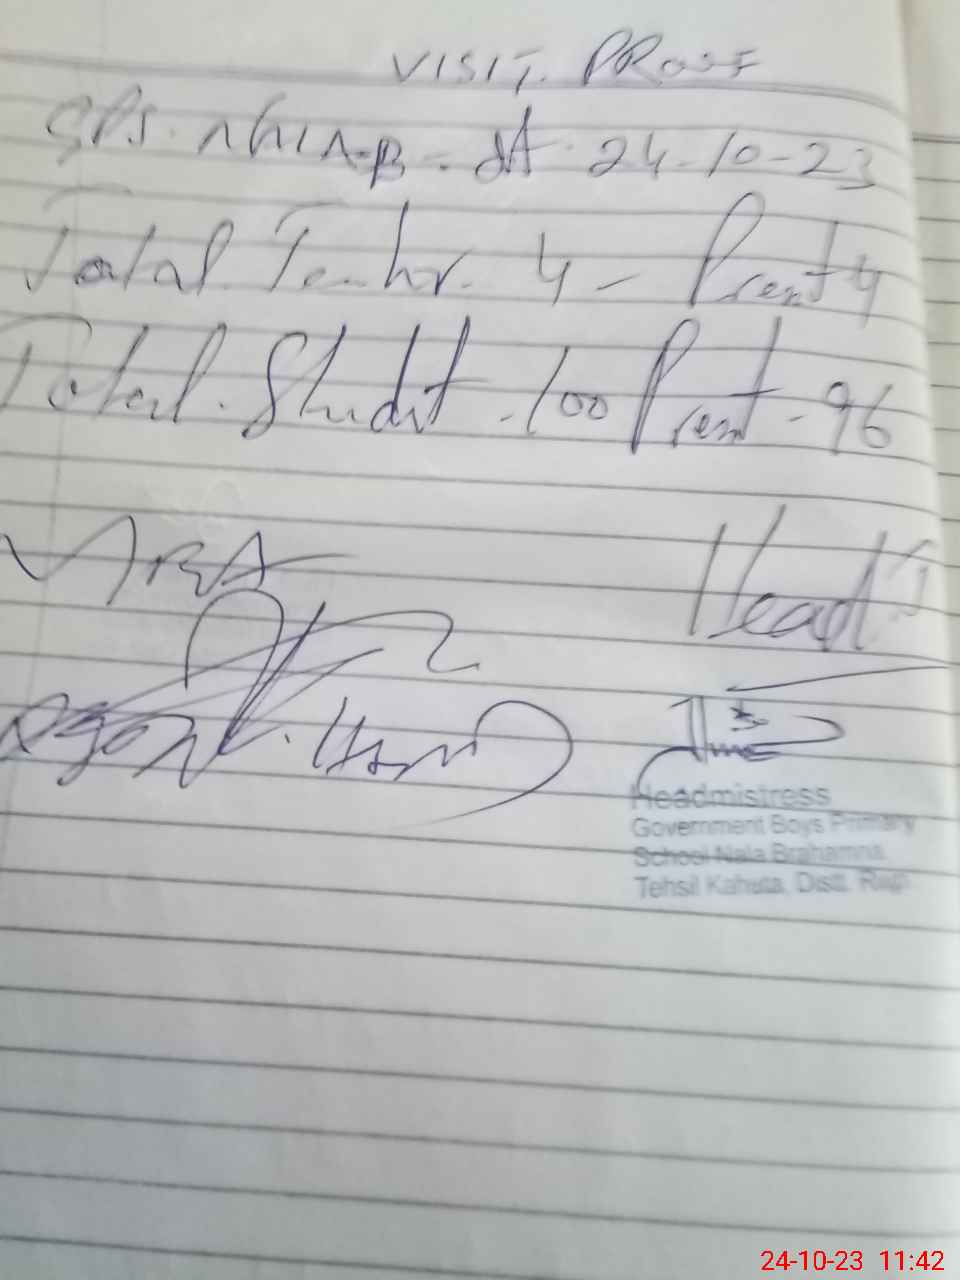 VISIT. PROOF
GPS. dt. 24-10-23
Total Teahr. 4 - Present 4
Total. Studnt. 100 Present - 96
Head
Headmistress
Government Boys Primary
School Nala Brahamna
Tehsil Kahuta, Distt. Rwp.
24-10-23 11:42